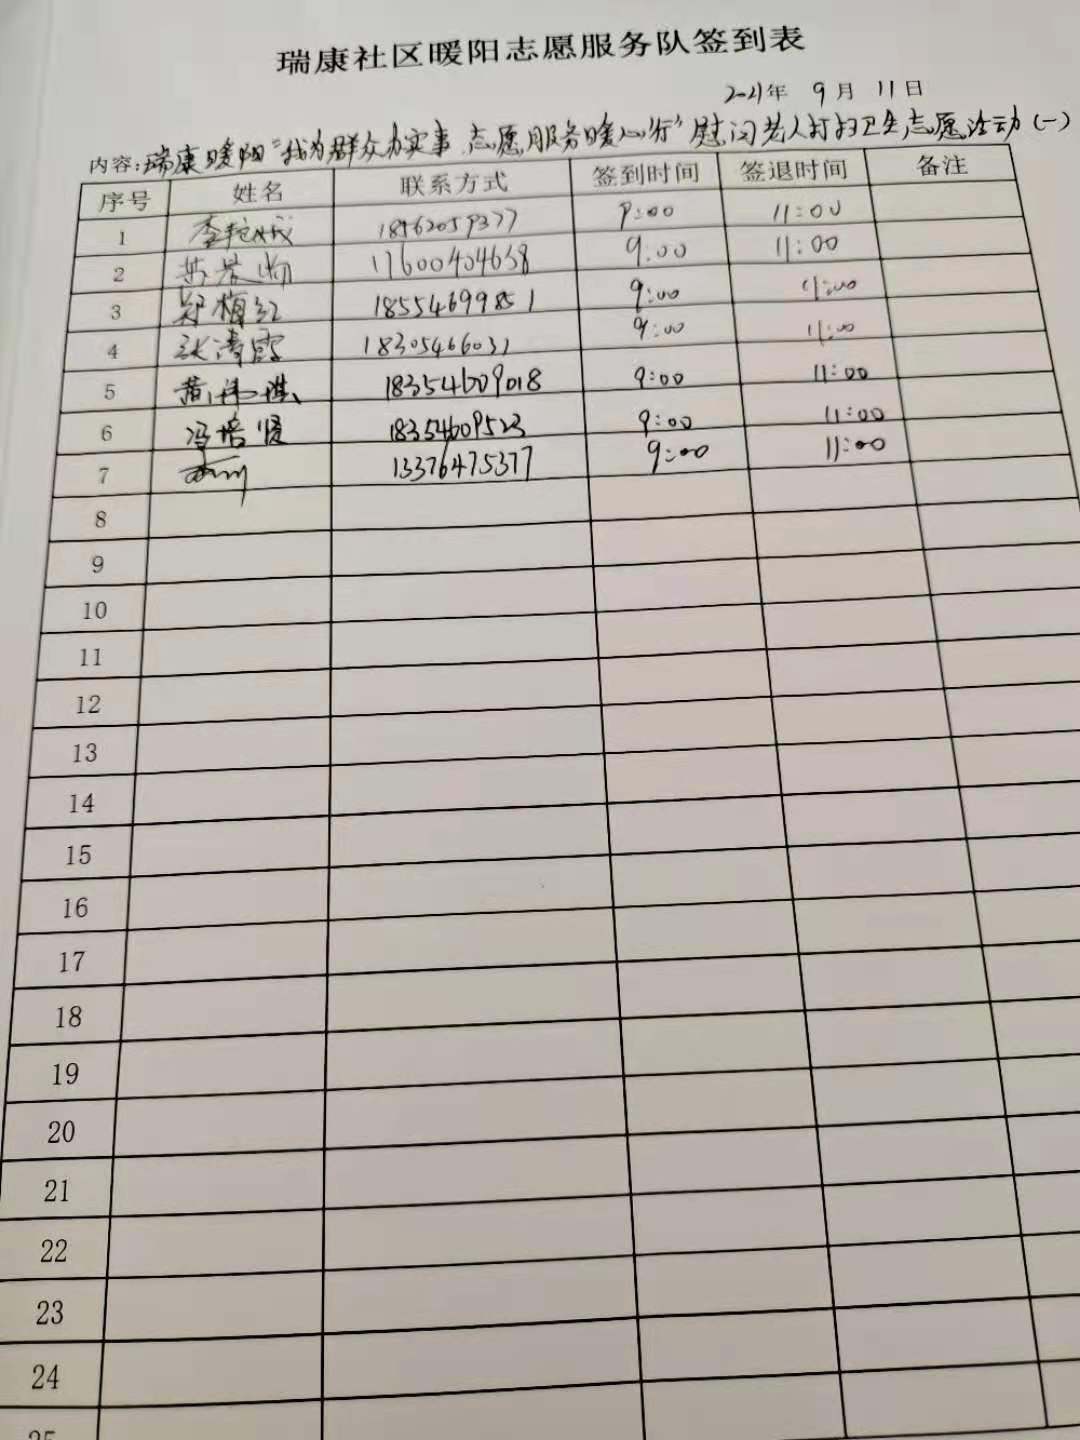 瑞康社区暖阳志愿服务队签到表
2021年 9月 11日
内容:瑞康暖阳"我为群众办实事 志愿服务暖心行"慰问老人打扫卫生志愿活动(一)
序号 姓名 联系方式 签到时间 签退时间 备注
1 9:00 11:00
2 17600404638 9:00 11:00
3 郑梅红 18554699851 9:00 11:00
4 张涛霞 18305466031 9:00 11:00
5 18354609018 9:00 11:00
6 冯培贤 18354609523 9:00 11:00
7 13376475377 9:00 11:00
8
9
10
11
12
13
14
15
16
17
18
19
20
21
22
23
24
25